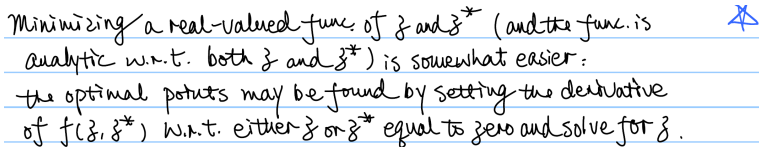 Minimizing a real-valued func. of z and z* (and the func. is
analytic w.r.t. both z and z*) is somewhat easier:
the optimal points may be found by setting the derivative
of f(z, z*) w.r.t. either z or z* equal to zero and solve for z.